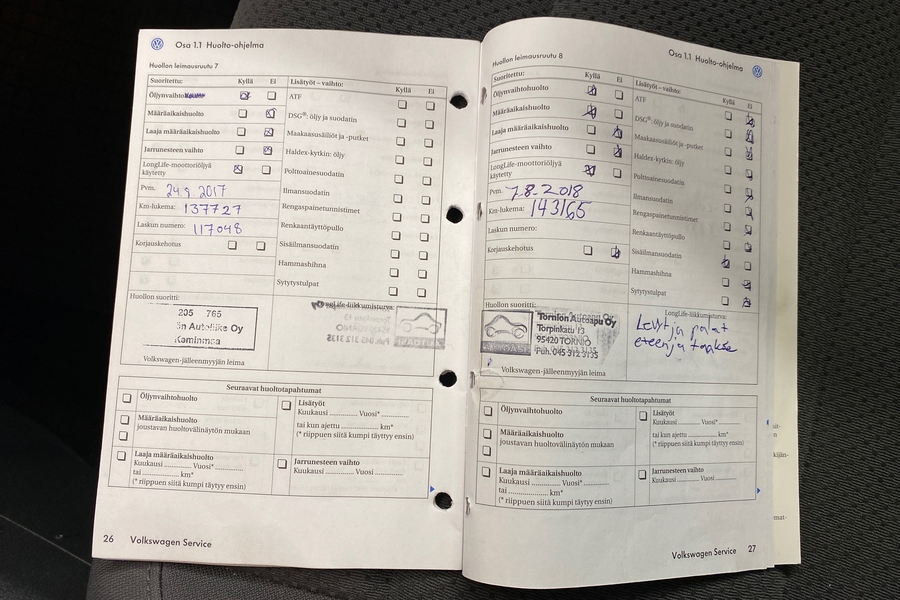 Osa 1.1 Huolto-ohjelma
Huollon leimausruutu 7
Suoritettu: Kyllä Ei
Öljynvaihto
Määräaikaishuolto
Laaja määräaikaishuolto
Jarrunesteen vaihto
LongLife-moottoriöljyä
käytetty
Pvm. 24.8.2017
Km-lukema: 137727
Laskun numero: 117048
Korjauskehotus
Lisätyöt – vaihto: Kyllä Ei
ATF
DSG®: öljy ja suodatin
Maakaasusäiliöt ja -putket
Haldex-kytkin: öljy
Polttoainesuodatin
Ilmansuodatin
Rengaspainetunnistimet
Renkaantäyttöpullo
Sisäilmansuodatin
Hammashihna
Sytytystulpat
Huollon suoritti:
205 765
än Autoliike Oy
Kaminmaa
LongLife-liikkumisturva:
Volkswagen-jälleenmyyjän leima
Seuraavat huoltotapahtumat
Öljynvaihtohuolto
Määräaikaishuolto
joustavan huoltovälinäytön mukaan
Laaja määräaikaishuolto
Kuukausi ............ Vuosi* ............
tai ............ km*
(* riippuen siitä kumpi täytyy ensin)
Lisätyöt
Kuukausi ............ Vuosi* ............
tai kun ajettu ............ km*
(* riippuen siitä kumpi täytyy ensin)
Jarrunesteen vaihto
Kuukausi ............ Vuosi ............
26 Volkswagen Service
Osa 1.1 Huolto-ohjelma
Huollon leimausruutu 8
Suoritettu: Kyllä Ei
Öljynvaihtohuolto
Määräaikaishuolto
Laaja määräaikaishuolto
Jarrunesteen vaihto
LongLife-moottoriöljyä
käytetty
Pvm. 7.8.2018
Km-lukema: 143165
Laskun numero:
Korjauskehotus
Lisätyöt – vaihto: Kyllä Ei
ATF
DSG®: öljy ja suodatin
Maakaasusäiliöt ja -putket
Haldex-kytkin: öljy
Polttoainesuodatin
Ilmansuodatin
Rengaspainetunnistimet
Renkaantäyttöpullo
Sisäilmansuodatin
Hammashihna
Sytytystulpat
Huollon suoritti:
Tornion Autoapu Oy
Torpinkatu 13
95420 TORNIO
Puh. 045 312 3135
LongLife-liikkumisturva:
Levyt ja palat
eteen ja taakse
Volkswagen-jälleenmyyjän leima
Seuraavat huoltotapahtumat
Öljynvaihtohuolto
Määräaikaishuolto
joustavan huoltovälinäytön mukaan
Laaja määräaikaishuolto
Kuukausi ............ Vuosi* ............
tai ............ km*
(* riippuen siitä kumpi täytyy ensin)
Lisätyöt
Kuukausi ............ Vuosi* ............
tai kun ajettu ............ km*
(* riippuen siitä kumpi täytyy ensin)
Jarrunesteen vaihto
Kuukausi ............ Vuosi ............
Volkswagen Service 27